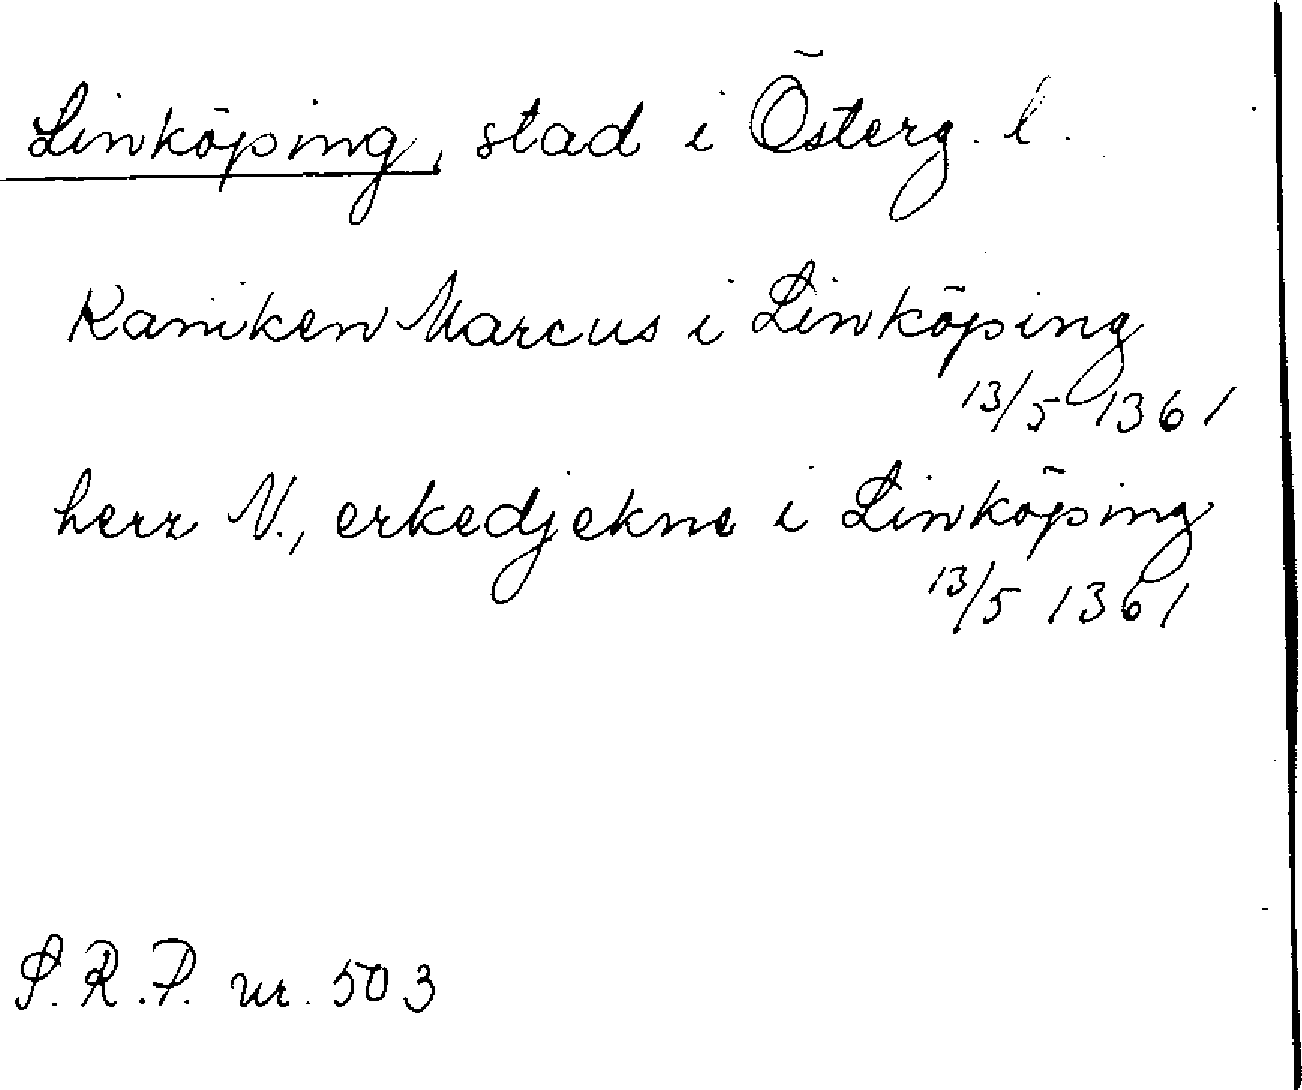 Linköping, stad i Österg. l.
Kaniken Marcus i Linköping
13/5 1361
herr N., erkedjekne i Linköping
13/5 1361
S. R. P. nr. 503